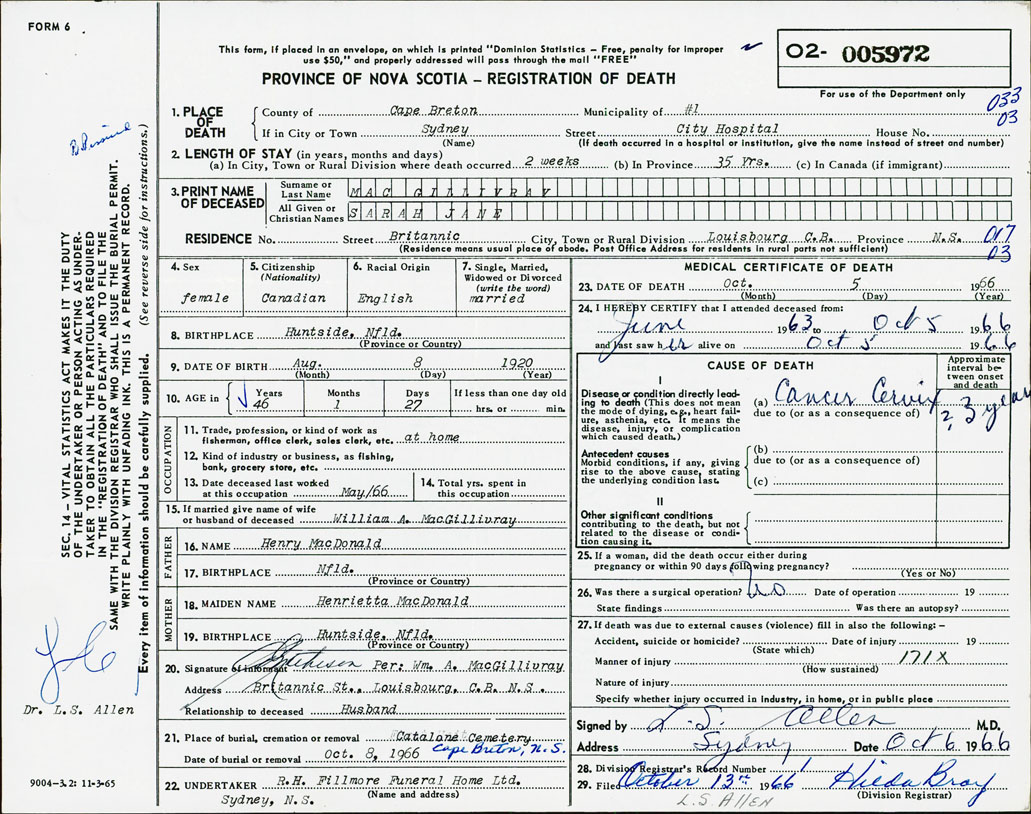 FORM 6
This form, if placed in an envelope, on which is printed "Dominion Statistics – Free, penalty for improper
use $50," and properly addressed will pass through the mail "FREE"
PROVINCE OF NOVA SCOTIA – REGISTRATION OF DEATH
02- 005972
For use of the Department only
033
03
1. PLACE OF DEATH
County of Cape Breton Municipality of #1
If in City or Town Sydney Street City Hospital House No.
(Name) (If death occurred in a hospital or institution, give the name instead of street and number)
2. LENGTH OF STAY (in years, months and days)
(a) In City, Town or Rural Division where death occurred 2 weeks (b) In Province 35 Yrs. (c) In Canada (if immigrant)
3. PRINT NAME OF DECEASED
Surname or Last Name MAC GILLIVRAY
All Given or Christian Names SARAH JANE
RESIDENCE No. Street Britannic City, Town or Rural Division Louisbourg C.B. Province N.S. 017
(Residence means usual place of abode. Post Office Address for residents in rural parts not sufficient) 03
4. Sex
female
5. Citizenship
(Nationality)
Canadian
6. Racial Origin
English
7. Single, Married,
Widowed or Divorced
(write the word)
married
8. BIRTHPLACE Huntside, Nfld.
(Province or Country)
9. DATE OF BIRTH Aug. 8 1920
(Month) (Day) (Year)
10. AGE in Years Months Days If less than one day old
46 1 27 hrs. or min.
OCCUPATION
11. Trade, profession, or kind of work as
fisherman, office clerk, sales clerk, etc. at home
12. Kind of industry or business, as fishing,
bank, grocery store, etc.
13. Date deceased last worked
at this occupation May/66
14. Total yrs. spent in
this occupation
15. If married give name of wife
or husband of deceased William A. MacGillivray
FATHER
16. NAME Henry MacDonald
17. BIRTHPLACE Nfld.
(Province or Country)
MOTHER
18. MAIDEN NAME Henrietta MacDonald
19. BIRTHPLACE Huntside, Nfld.
(Province or Country)
20. Signature of informant Per: Wm. A. MacGillivray
Address Britannic St., Louisbourg, C.B. N.S.
Relationship to deceased Husband
21. Place of burial, cremation or removal Catalone Cemetery
Cape Breton, N.S.
Date of burial or removal Oct. 8, 1966
22. UNDERTAKER R.H. Fillmore Funeral Home Ltd.
Sydney, N.S. (Name and address)
MEDICAL CERTIFICATE OF DEATH
23. DATE OF DEATH Oct. 5 1966
(Month) (Day) (Year)
24. I HEREBY CERTIFY that I attended deceased from:
June 1963 to Oct 5 1966
and last saw her alive on Oct 5 1966
CAUSE OF DEATH
Approximate
interval be-
tween onset
and death
I
Disease or condition directly lead-
ing to death (This does not mean
the mode of dying, e.g., heart fail-
ure, asthenia, etc. It means the
disease, injury, or complication
which caused death.)
(a) Cancer Cervix 3 years
due to (or as a consequence of)
Antecedent causes
Morbid conditions, if any, giving
rise to the above cause, stating
the underlying condition last.
(b)
due to (or as a consequence of)
(c)
II
Other significant conditions
contributing to the death, but not
related to the disease or condi-
tion causing it.
25. If a woman, did the death occur either during
pregnancy or within 90 days following pregnancy?
(Yes or No)
26. Was there a surgical operation? No Date of operation 19
State findings Was there an autopsy?
27. If death was due to external causes (violence) fill in also the following: –
Accident, suicide or homicide? Date of injury 19
(State which)
Manner of injury 171X
(How sustained)
Nature of injury
Specify whether injury occurred in Industry, in home, or in public place
Signed by L. S. Allen M.D.
Address Sydney Date Oct 6 1966
28. Division Registrar's Record Number 1
29. Filed October 13th 1966 Hilda Bray
L.S ALLEN (Division Registrar)
SEC. 14 – VITAL STATISTICS ACT MAKES IT THE DUTY
OF THE UNDERTAKER OR PERSON ACTING AS UNDER-
TAKER TO OBTAIN ALL THE PARTICULARS REQUIRED
IN THE "REGISTRATION OF DEATH" AND TO FILE THE
SAME WITH THE DIVISION REGISTRAR WHO SHALL ISSUE THE BURIAL PERMIT.
WRITE PLAINLY WITH UNFADING INK. THIS IS A PERMANENT RECORD.
Every item of information should be carefully supplied. (See reverse side for instructions.)
Dr. L.S. Allen
9004–3.2: 11-3-65